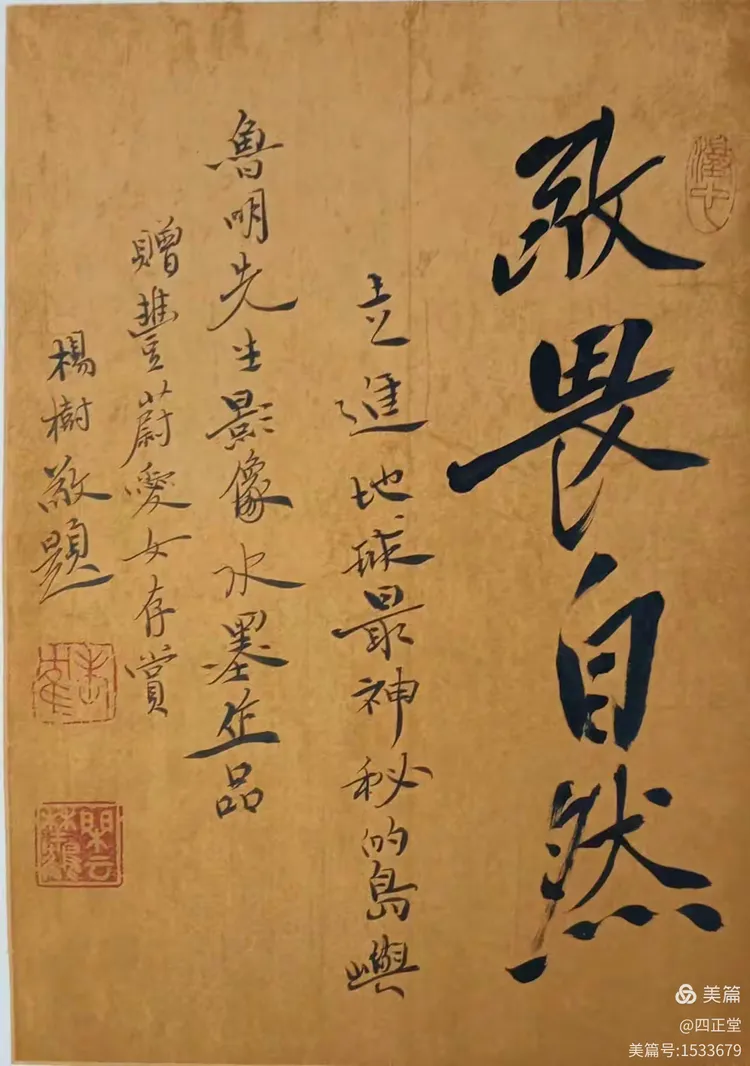 敬畏自然
走進地球最神秘的島嶼
魯明先生影像水墨作品
贈豐蔚愛女存賞
楊樹敬題
美篇
@四正堂
美篇号:1533679